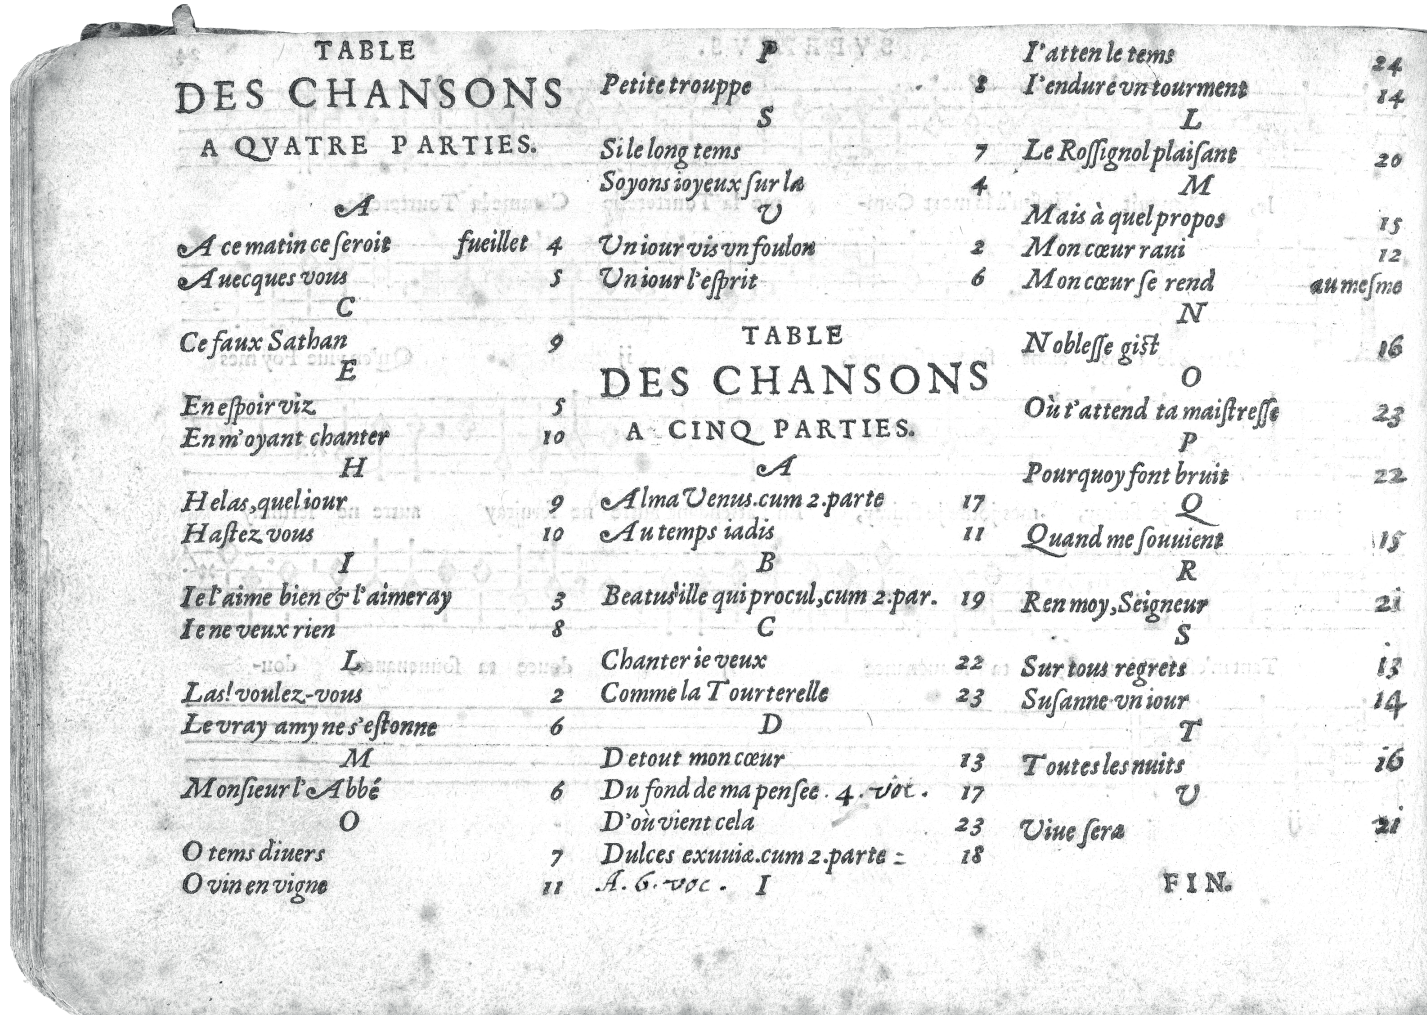 TABLE
DES CHANSONS
A QVATRE PARTIES.
A
A ce matin ce ſeroit fueillet 4
Auecques vous 5
C
Ce faux Sathan 9
E
En eſpoir viz 5
En m'oyant chanter 10
H
Helas, quel iour 9
Haſtez vous 10
I
Ie l'aime bien & l'aimeray 3
Ie ne veux rien 8
L
Las! voulez-vous 2
Le vray amy ne s'eſtonne 6
M
Monſieur l'Abbé 6
O
O tems diuers 7
O vin en vigne 11
P
Petite trouppe 8
S
Si le long tems 7
Soyons ioyeux ſur la 4
V
Vn iour vis vn foulon 2
Vn iour l'eſprit 6
TABLE
DES CHANSONS
A CINQ PARTIES.
A
Alma Venus. cum 2. parte 17
Au temps iadis 11
B
Beatus ille qui procul, cum 2. par. 19
C
Chanter ie veux 22
Comme la Tourterelle 23
D
De tout mon cœur 13
Du fond de ma penſee . 4 . voc . 17
D'où vient cela 23
Dulces exuuiæ. cum 2. parte : 18
A. 6. voc . I
I'atten le tems 24
I'endure vn tourment 14
L
Le Roſſignol plaiſant 20
M
Mais à quel propos 15
Mon cœur raui 12
Mon cœur ſe rend au meſme
N
Nobleſſe giſt 16
O
Où t'attend ta maiſtreſſe 23
P
Pourquoy font bruit 22
Q
Quand me ſouuient 15
R
Ren moy, Seigneur 21
S
Sur tous regrets 13
Suſanne vn iour 14
T
Toutes les nuits 16
V
Viue ſera 21
FIN.